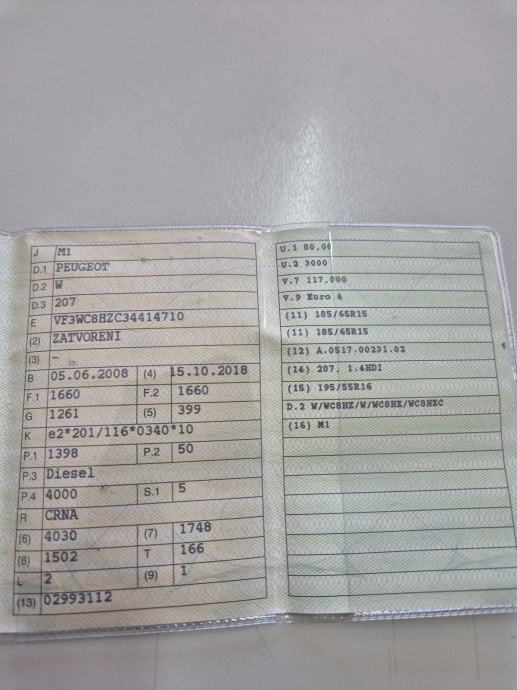 J M1
D.1 PEUGEOT
D.2 W
D.3 207
E VF3WC8HZC34414710
(2) ZATVORENI
(3) -
B 05.06.2008 (4) 15.10.2018
F.1 1660 F.2 1660
G 1261 (5) 399
K e2*201/116*0340*10
P.1 1398 P.2 50
P.3 Diesel
P.4 4000 S.1 5
R CRNA
(6) 4030 (7) 1748
(8) 1502 T 166
L 2 (9) 1
(13) 02993112
U.1 80,00
U.2 3000
V.7 117.000
V.9 Euro 4
(11) 185/65R15
(11) 185/65R15
(12) A.0517.00231.02
(14) 207, 1.4HDI
(15) 195/55R16
D.2 W/WC8HZ/W/WC8HZ/WC8HZC
(16) M1